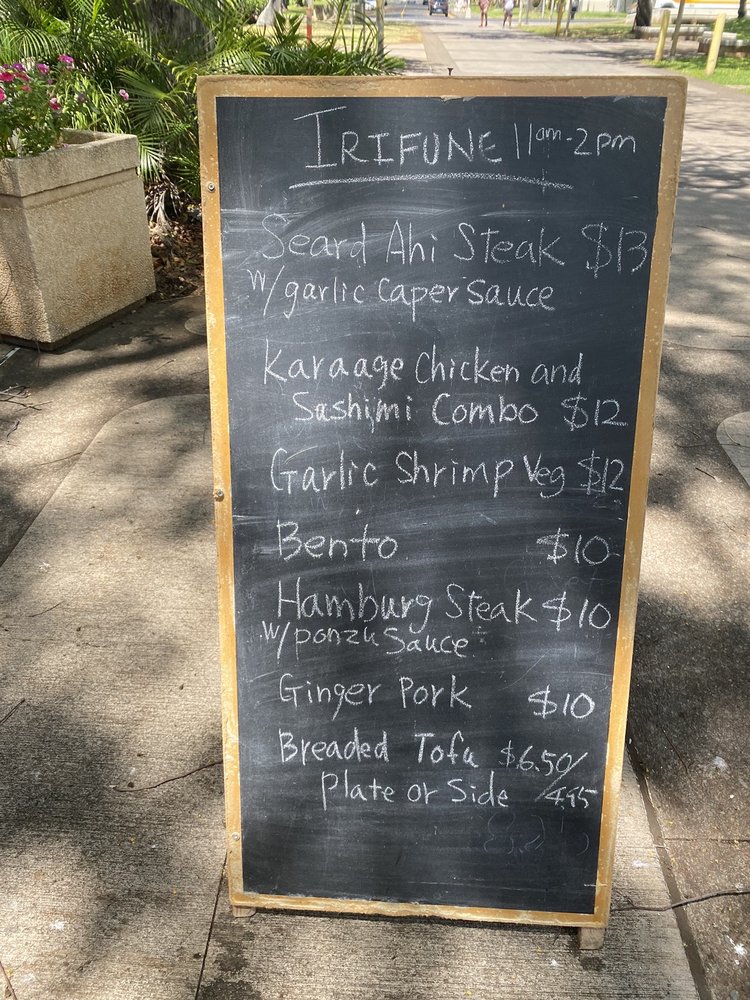 IRIFUNE 11am-2pm
Seard Ahi Steak $13
w/garlic caper sauce
Karaage Chicken and
Sashimi Combo $12
Garlic Shrimp Veg $12
Bento $10
Hamburg Steak $10
w/ponzu Sauce
Ginger Pork $10
Breaded Tofu $6.50/
Plate or Side /4.95